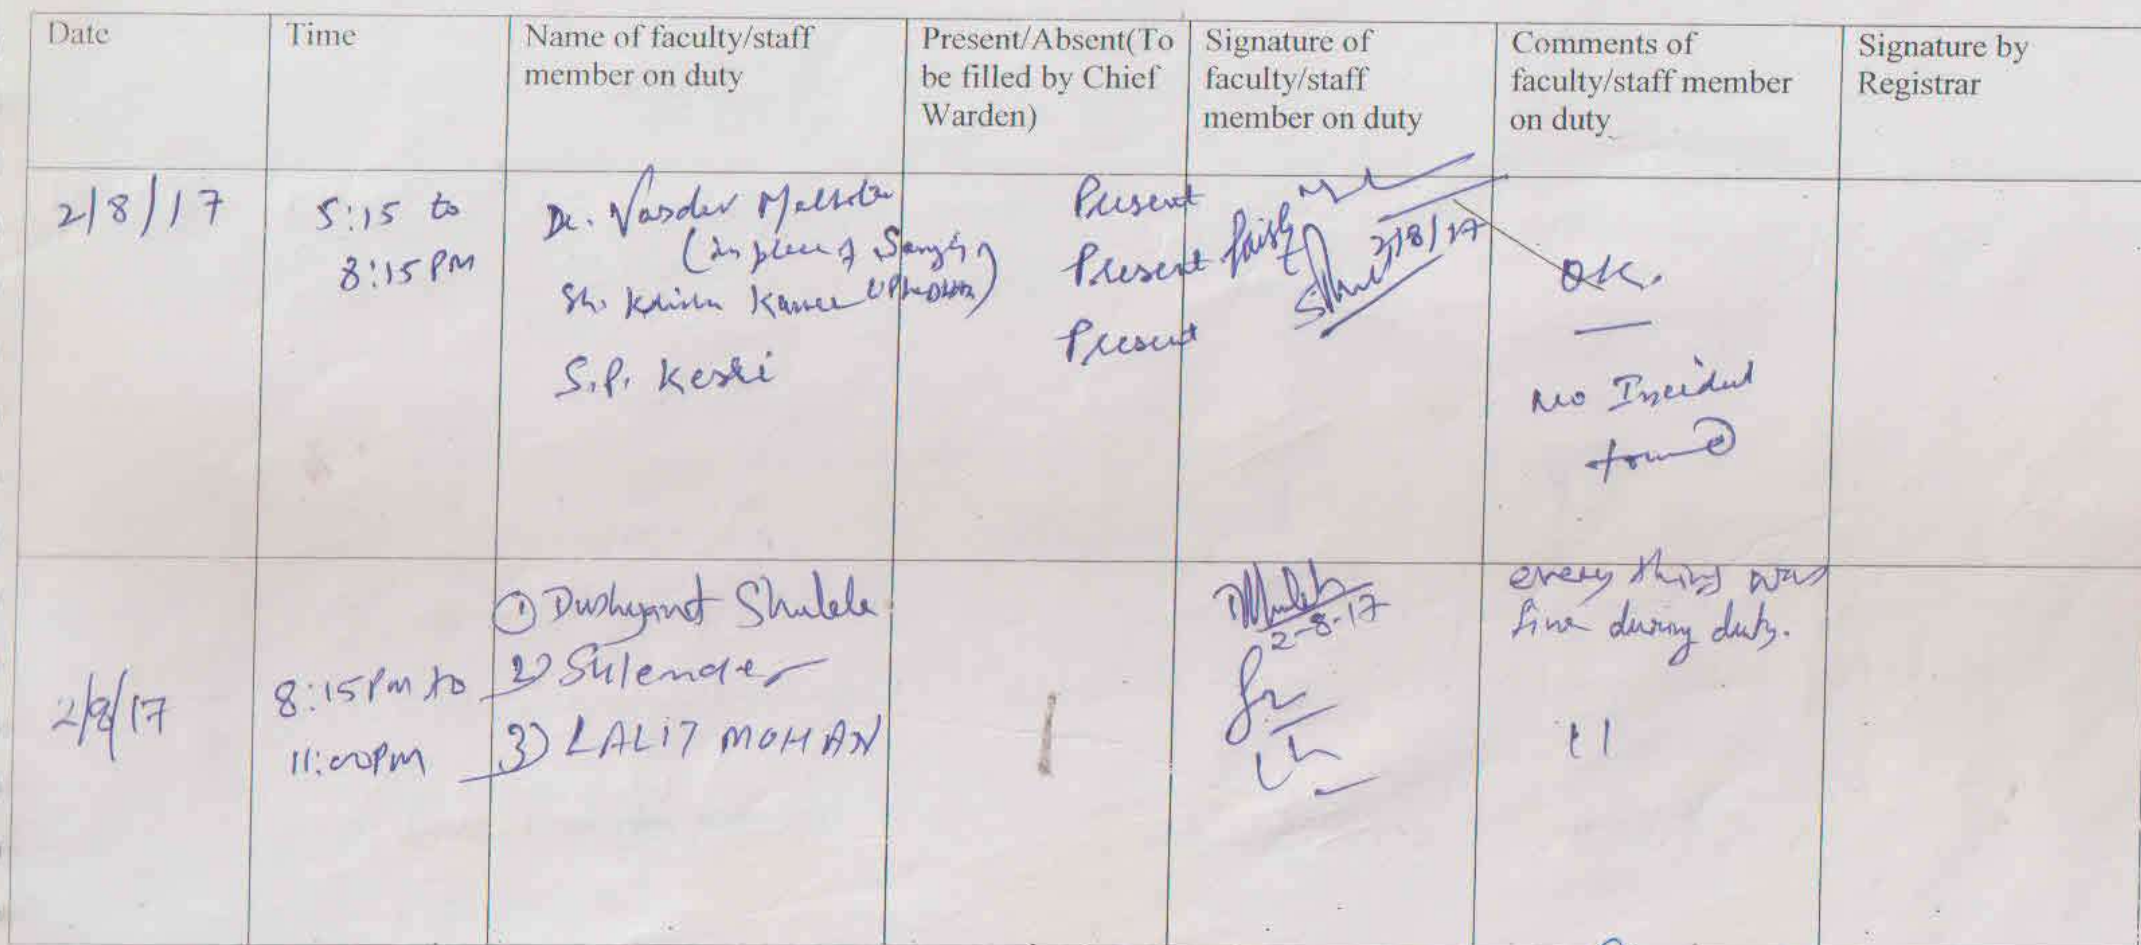 Date
Time
Name of faculty/staff
member on duty
Present/Absent(To
be filled by Chief
Warden)
Signature of
faculty/staff
member on duty
Comments of
faculty/staff member
on duty
Signature by
Registrar
2/8/17
5:15 to
8:15 PM
Dr.
(in place of
Sh.
S.P. Keshi
Present
Present
Present
2/8/17
OK.
No
found
2/8/17
8:15 Pm to
11:00 PM
① Dushyant
2)
3) LALIT MOHAN
2-8-17
every thing was
fine during duty.
11